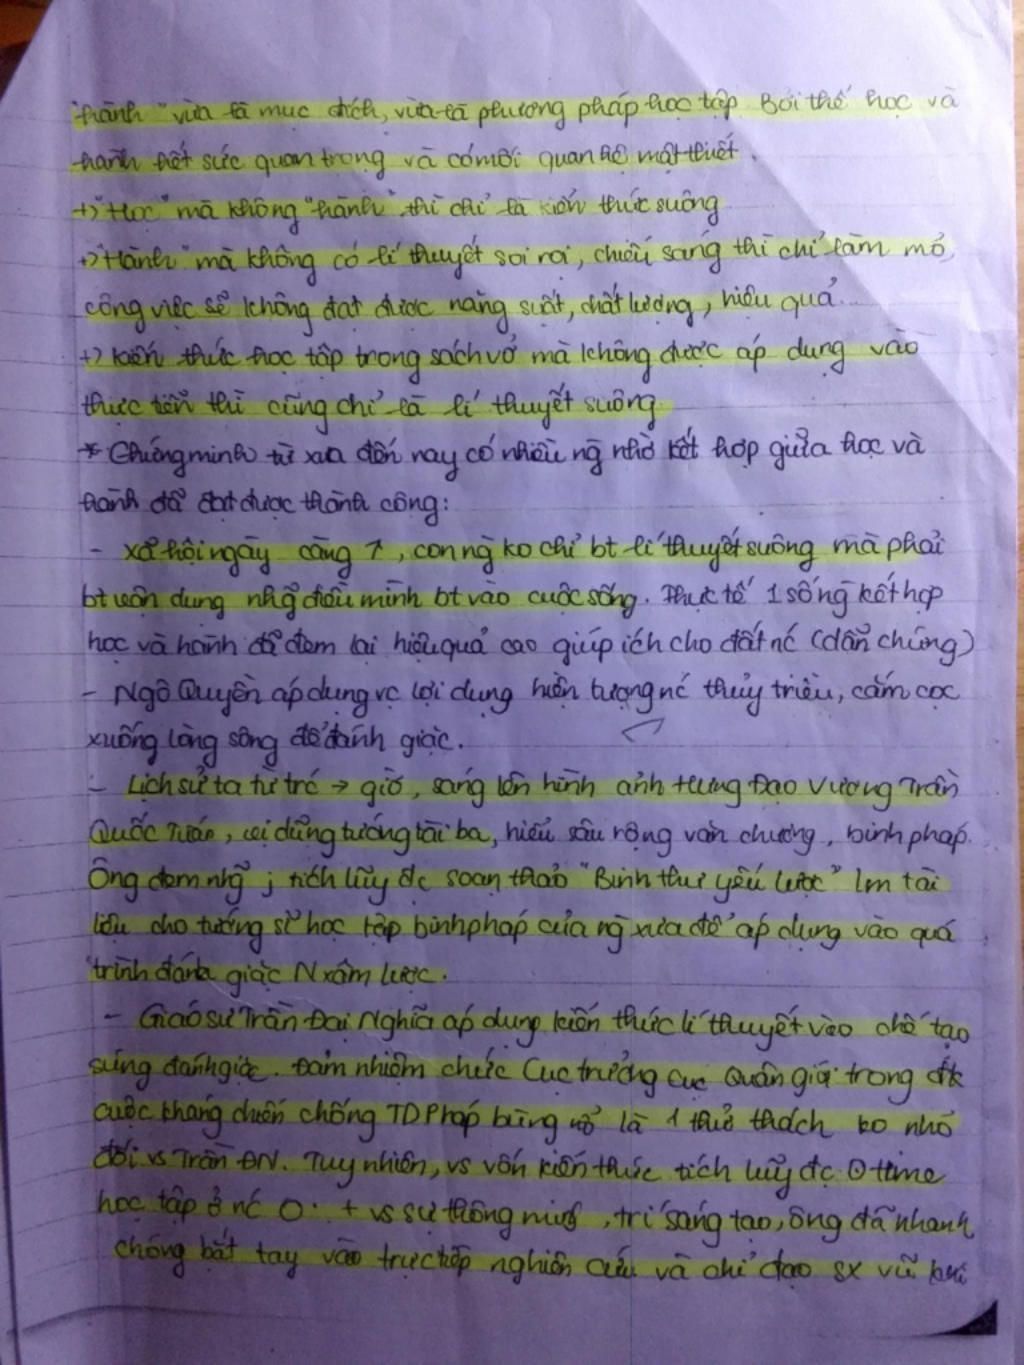 hành" vừa là mục đích, vừa là phương pháp học tập. Bởi thế học và
hành hết sức quan trọng và có mối quan hệ mật thiết.
+) "Học" mà không "hành" thì chỉ là kiến thức suông
+) "Hành" mà không có lí thuyết soi rọi, chiếu sáng thì chỉ làm mò,
công việc sẽ không đạt được năng suất, chất lượng, hiệu quả...
+) Kiến thức học tập trong sách vở mà không được áp dụng vào
thực tiễn thì cũng chỉ là lí thuyết suông.
* Chứng minh từ xưa đến nay có nhiều ng nhờ kết hợp giữa học và
hành để đạt được thành công:
- Xã hội ngày càng ↑, con ng ko chỉ bt lí thuyết suông mà phải
bt vận dụng nhg điều mình bt vào cuộc sống. Thực tế 1 số ng kết hợp
học và hành để đem lại hiệu quả cao giúp ích cho đất nc (dẫn chứng)
- Ngô Quyền áp dụng vc lợi dụng hiện tượng nc thủy triều, cắm cọc
xuống lòng sông để đánh giặc.
- Lịch sử ta từ trc → giờ, sáng lên hình ảnh Hưng Đạo Vương Trần
Quốc Tuấn, vị dũng tướng tài ba, hiểu sâu rộng văn chương, binh pháp.
Ông đem nhg j tích lũy đc soạn thảo "Binh thư yếu lược" lm tài
liệu cho tướng sĩ học tập binh pháp của ng xưa để áp dụng vào quá
trình đánh giặc N xâm lược.
- Giáo sư Trần Đại Nghĩa áp dụng kiến thức lí thuyết vào chế tạo
súng đánh giặc. Đảm nhiệm chức Cục trưởng cục Quân giới trong đk
cuộc kháng chiến chống TD Pháp bùng nổ là 1 thử thách ko nhỏ
đối vs Trần ĐN. Tuy nhiên, vs vốn kiến thức tích lũy đc time
học tập ở nc + vs sự thông minh, trí sáng tạo, ông đã nhanh
chóng bắt tay vào trực tiếp nghiên cứu và chỉ đạo sx vũ khí